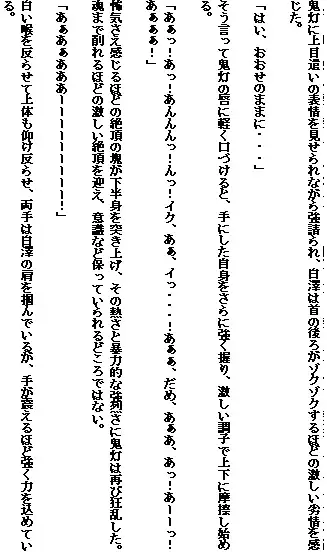 鬼灯に上目遣いの表情を見せられながら強請られ、白澤は首の後ろがゾクゾクするほどの激しい劣情を感
じた。
「はい、おおせのままに・・・」
そう言って鬼灯の唇に軽く口づけると、手にした自身をさらに強く握り、激しい調子で上下に摩擦し始め
る。
「あぁっ！あっ！あんんんっ！んっ！イク、あぁ、イっ・・・！あぁぁ、だめ、あぁあ、あっ！あーーっ！
あぁぁぁ！」
怖気さえ感じるほどの絶頂の塊が下半身を突き上げ、その熱さと暴力的な強烈さに鬼灯は再び狂乱した。
魂まで削れるほどの激しい絶頂を迎え、意識など保っていられるどころではない。
「あぁあぁあああーーーーーーーー！」
白い喉を反らせて上体も仰け反らせ、両手は白澤の肩を掴んでいるが、手が震えるほど強く力を込めてい